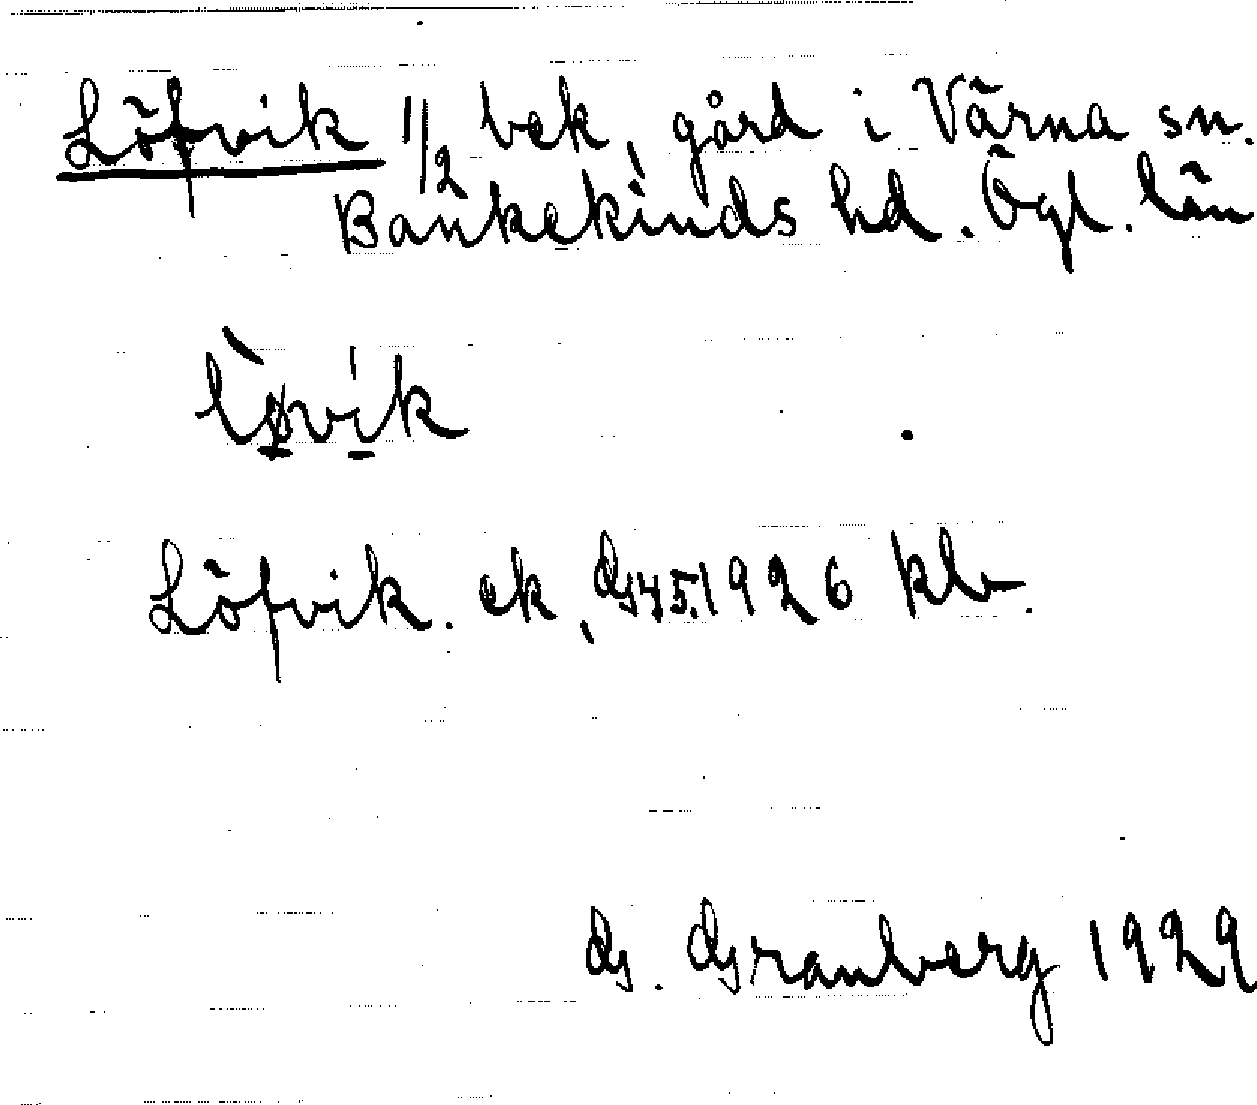 Löfvik 1/2 bek, gård i Värna sn.
Bankekinds hd. Ögl. län
Löfvik. ek, G451926 kb.
G. Granberg 1929